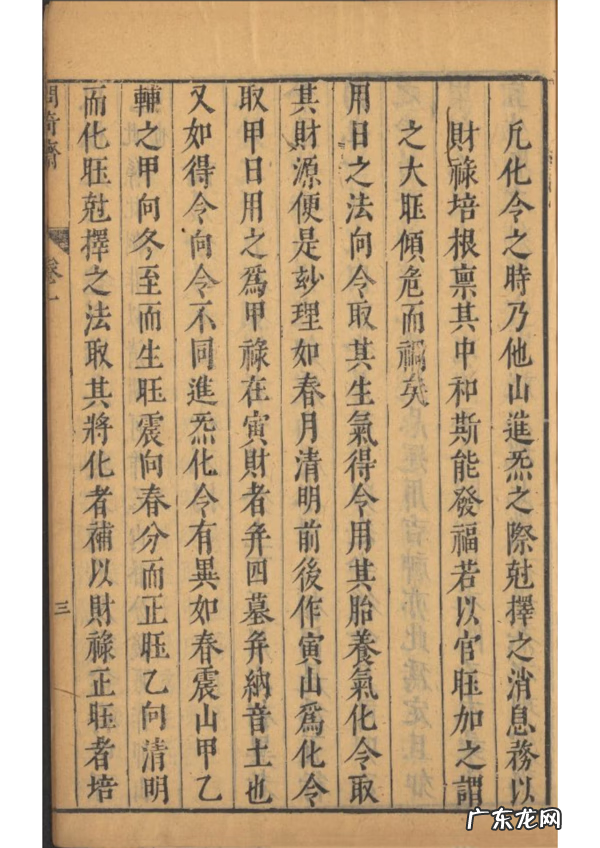 凡化令之時乃他山進炁之際尅擇之消息務以
財祿培根禀其中和斯能發福若以官旺加之謂
之大旺傾危而禍矣
用日之法向令取其生氣得令用其胎養氣化令取
其財源便是玅理如春月清明前後作寅山爲化令
取甲日用之爲甲祿在寅財者弁四墓弁納音土也
又如得令向令不同進炁化令有異如春震山甲乙
輔之甲向冬至而生旺震向春分而正旺乙向清明
而化旺尅擇之法取其將化者補以財祿正旺者培
齋
卷一
三
广东龙网